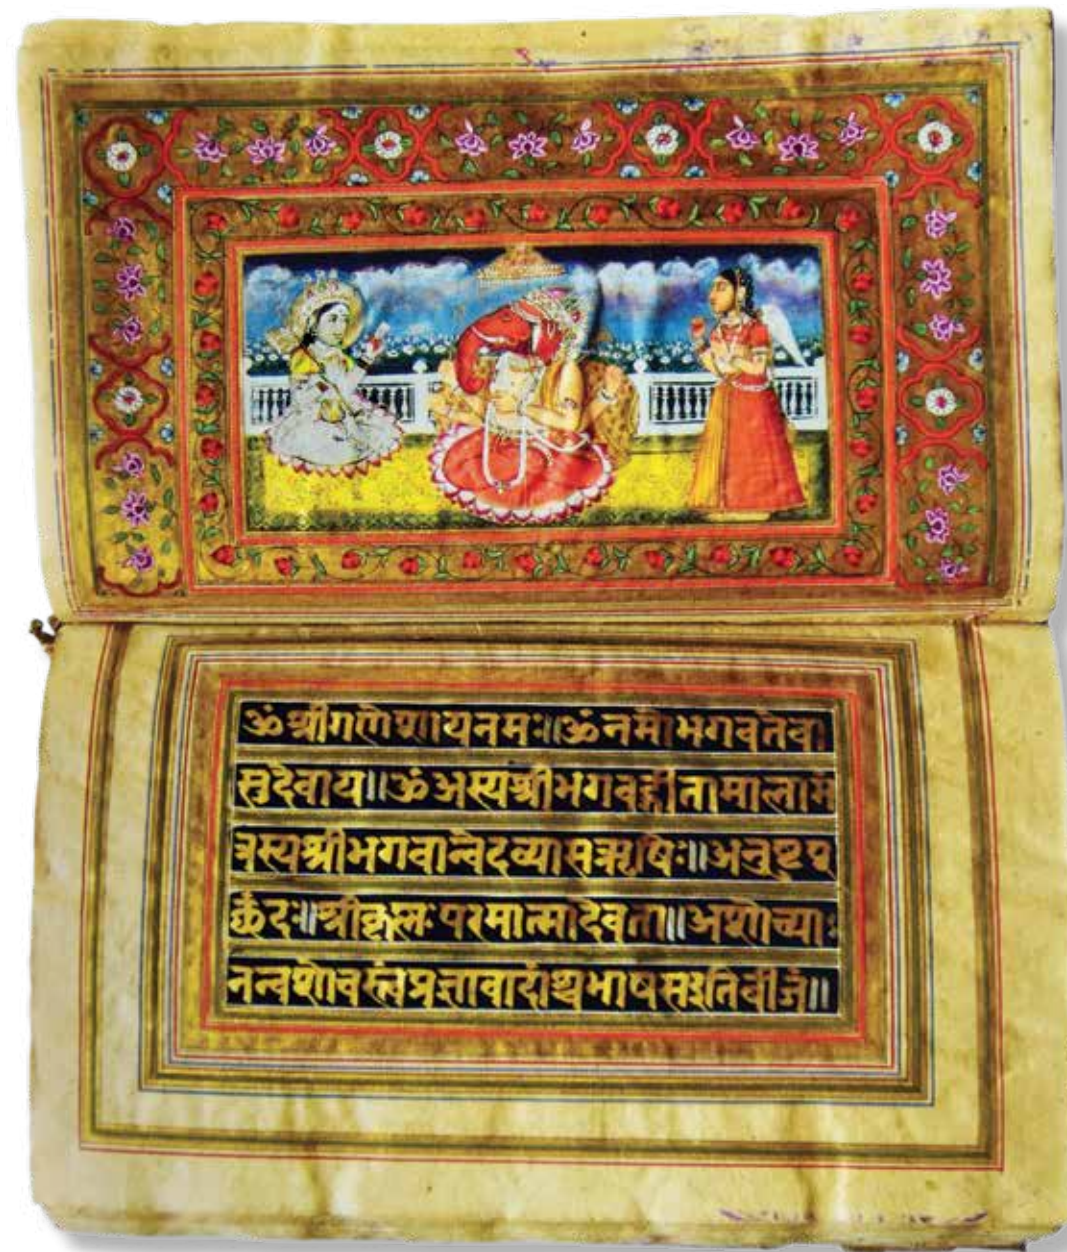 ॐ श्रीगणेशायनमः॥ॐनमोभगवतेवा
सुदेवाय॥ॐअस्यश्रीभगवद्गीतामालामं
त्रस्यश्रीभगवान्वेदव्यासऋषिः॥अनुष्टुप्
छंदः॥श्रीकृष्णः परमात्मादेवता॥अशोच्या
नन्वशोचस्त्वंप्रज्ञावादांश्चभाषसइतिबीजं॥